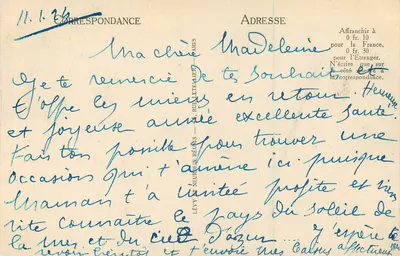 11.1.26
CORRESPONDANCE
ADRESSE
Affranchir à
0 fr. 10
pour la France,
0 fr. 30
pour l'Etranger.
N'écrire que sur
le côté
correspondance.
Ma chère Madeleine
Je te remercie de tes souhaits et
t'offre les miens en retour. Heureuse
et joyeuse année excellente santé.
Fais ton possible pour trouver une
occasion qui t'amène ici puisque
Maman t'a invitée profite et viens
vite connaître le pays du soleil de
la mer et du ciel d'azur... J'espère te
revoir bientôt et t'envoie mes baisers affectueux